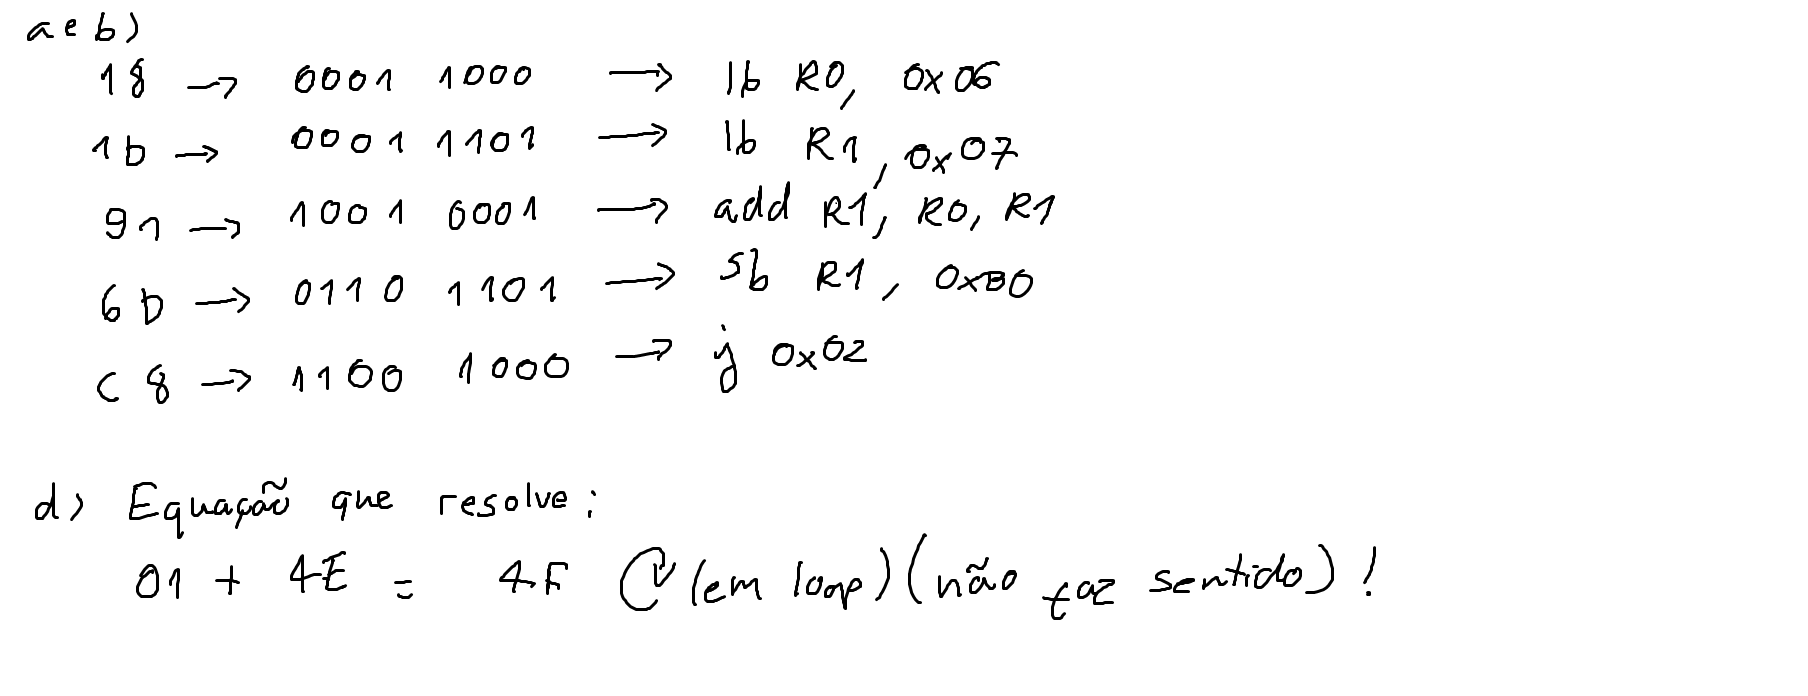 a e b)
18 → 0001 1000 → lb R0, 0x06
1b → 0001 1101 → lb R1, 0x07
91 → 1001 0001 → add R1, R0, R1
6D → 0110 1101 → sb R1, 0xB0
C8 → 1100 1000 → j 0x02
d) Equação que resolve:
01 + 4E = 4F (em loop) (não faz sentido)!